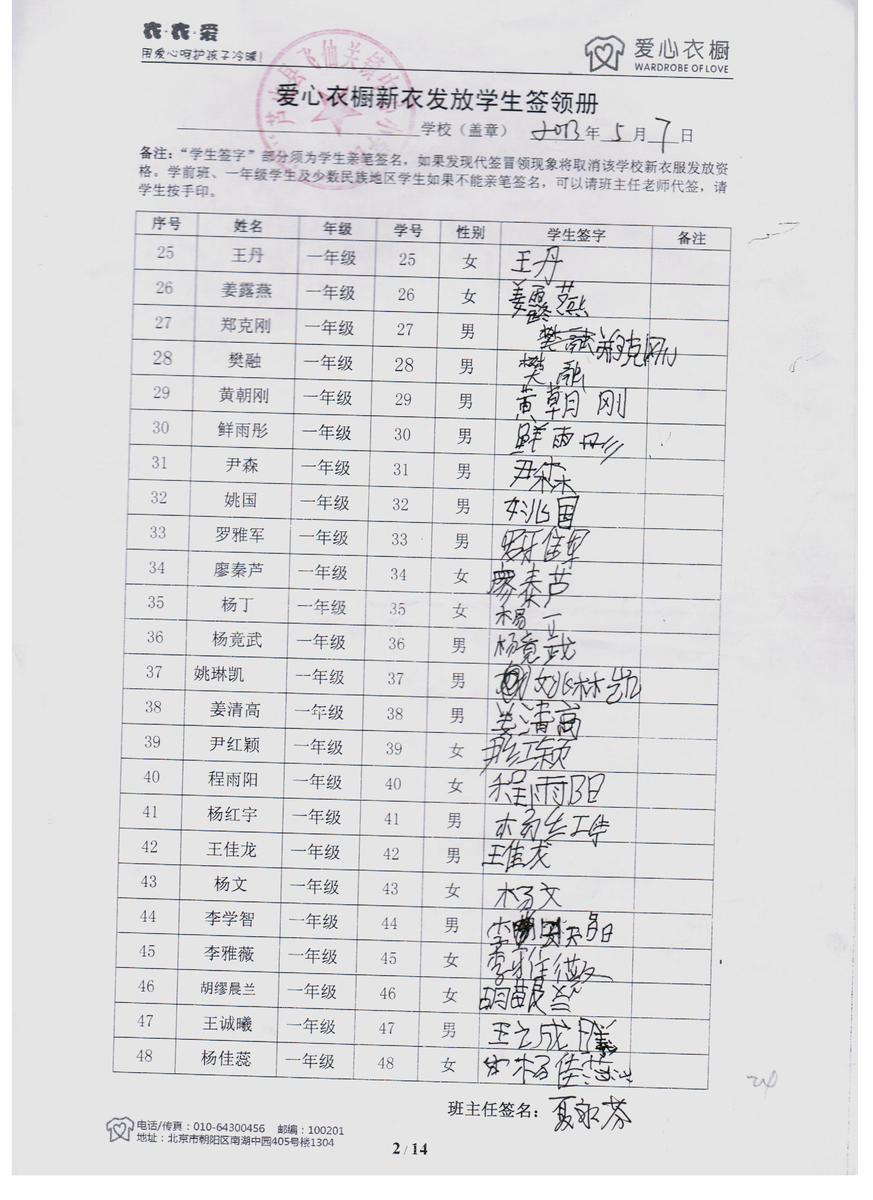 衣·衣·爱
用爱心呵护孩子冷暖!
爱心衣橱
WARDROBE OF LOVE
爱心衣橱新衣发放学生签领册
学校（盖章） 2013年 5 月 7 日
备注：“学生签字”部分须为学生亲笔签名，如果发现代签冒领现象将取消该学校新衣服发放资
格。学前班、一年级学生及少数民族地区学生如果不能亲笔签名，可以请班主任老师代签，请
学生按手印。
序号 姓名 年级 学号 性别 学生签字 备注
25 王丹 一年级 25 女 王丹
26 姜露燕 一年级 26 女 姜露燕
27 郑克刚 一年级 27 男 樊融郑克刚
28 樊融 一年级 28 男 樊融
29 黄朝刚 一年级 29 男 黄朝刚
30 鲜雨彤 一年级 30 男 鲜雨彤
31 尹森 一年级 31 男 尹森
32 姚国 一年级 32 男 姚国
33 罗雅军 一年级 33 男 罗雅军
34 廖秦芦 一年级 34 女 廖秦芦
35 杨丁 一年级 35 女 杨丁
36 杨竟武 一年级 36 男 杨竟武
37 姚琳凯 一年级 37 男 姚林凯
38 姜清高 一年级 38 男 姜清高
39 尹红颖 一年级 39 女 尹红颖
40 程雨阳 一年级 40 女 程雨阳
41 杨红宇 一年级 41 男 杨红宇
42 王佳龙 一年级 42 男 王佳龙
43 杨文 一年级 43 女 杨文
44 李学智 一年级 44 男 李
45 李雅薇 一年级 45 女 李雅薇
46 胡缪晨兰 一年级 46 女 胡
47 王诚曦 一年级 47 男 王诚曦
48 杨佳蕊 一年级 48 女 杨佳蕊
班主任签名：夏永芬
24
电话/传真：010-64300456 邮编：100201
地址：北京市朝阳区南湖中园405号楼1304
2 / 14